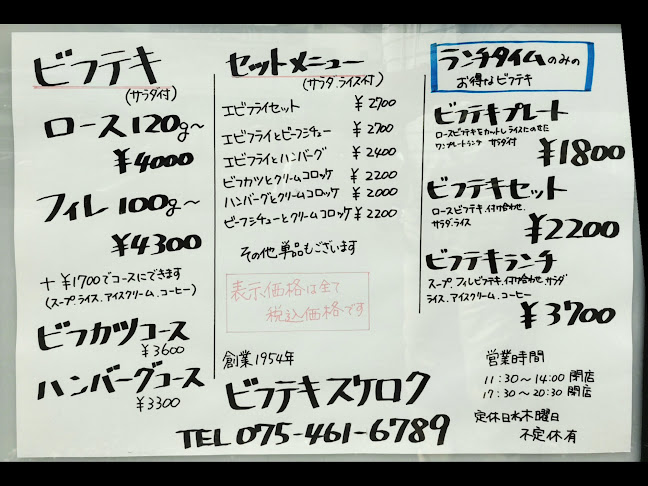 ビフテキ
(サラダ付)
ロース120g～
¥4000
フィレ100g～
¥4300
+¥1700でコースにできます
(スープ.ライス.アイスクリーム.コーヒー)
ビフカツコース
¥3600
ハンバーグコース
¥3300
セットメニュー
(サラダ.ライス付)
エビフライセット ¥2700
エビフライとビーフシチュー ¥2700
エビフライとハンバーグ ¥2400
ビフカツとクリームコロッケ ¥2200
ハンバーグとクリームコロッケ ¥2000
ビーフシチューとクリームコロッケ ¥2200
その他、単品もございます
表示価格は全て
税込価格です
創業1954年
ビフテキスケロク
TEL 075-461-6789
ランチタイムのみの
お得なビフテキ
ビフテキプレート
ロースビフテキをカットしライスにのせた
ワンプレートランチ サラダ付
¥1800
ビフテキセット
ロースビフテキ.付け合わせ.
サラダ.ライス
¥2200
ビフテキランチ
スープ.フィレビフテキ.付け合わせ.サラダ
ライス.アイスクリーム.コーヒー
¥3700
営業時間
11:30～14:00 閉店
17:30～20:30 閉店
定休日水木曜日
不定休有